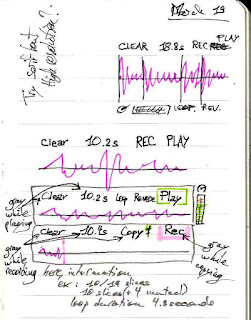 March 19
Try soft but
high resolution?
PLAY
CLEAR 18.8s REC
LOOP. REV.
Clear 10.2s REC PLAY
Clear 10.2s Loop Reverse Play
gray
while
playing
Clear 10.2s Copy Rec
gray
while
recording
gray
while
copying
here, information
ex: 10/14 slices
10 slices (+ 4 muted)
loop duration 4.8 seconds